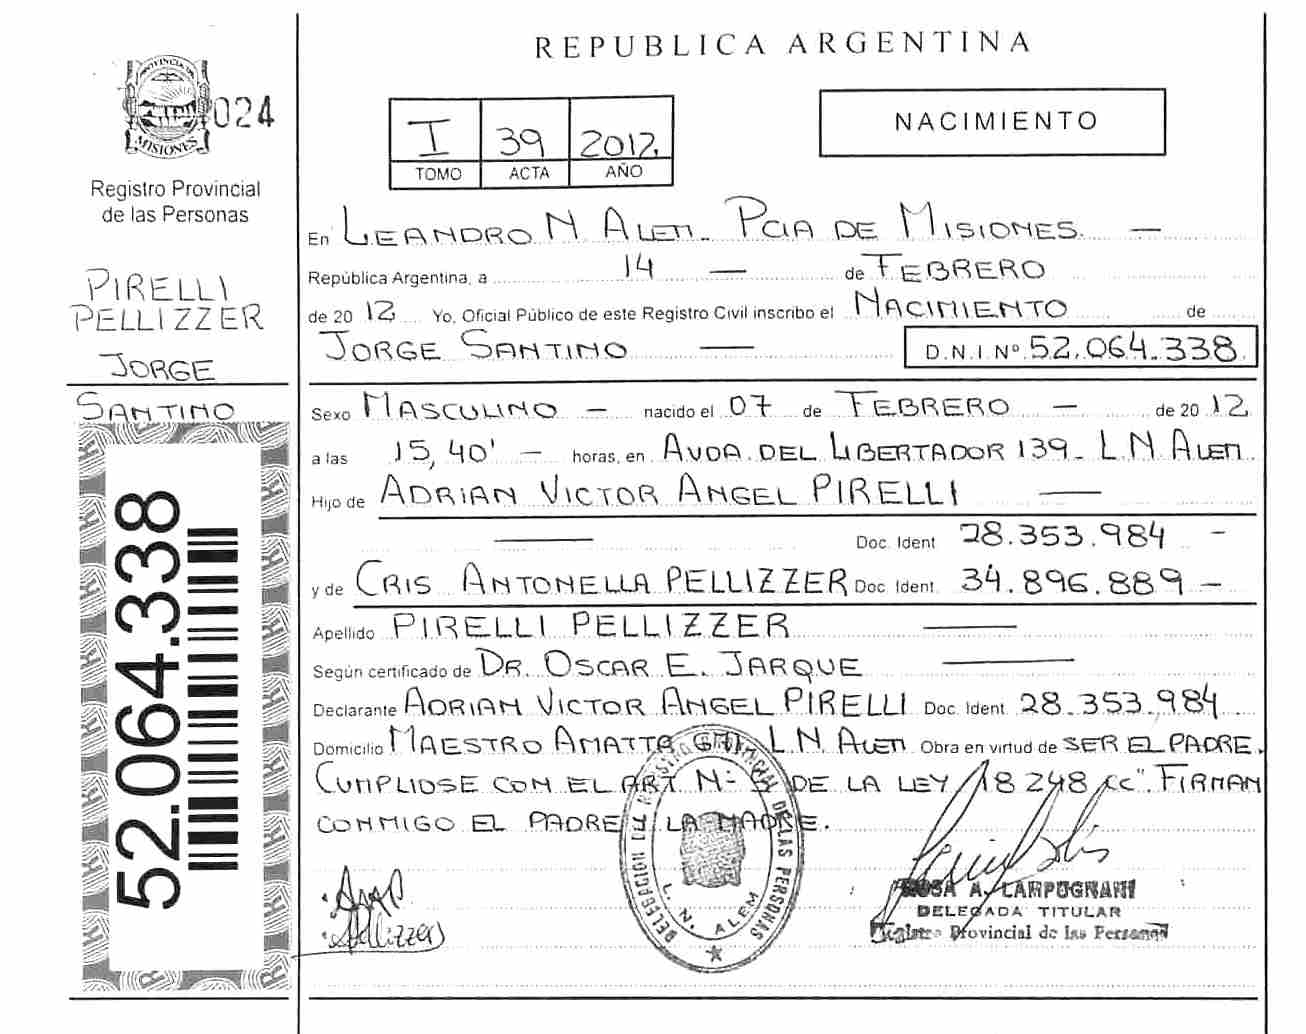 PROVINCIA DE
MISIONES
024
Registro Provincial
de las Personas
PIRELLI
PELLIZZER
JORGE
SANTINO
52.064.338
REPUBLICA ARGENTINA
I 39 2012.
TOMO ACTA AÑO
NACIMIENTO
En LEANDRO N ALEM. PCIA DE MISIONES. —
República Argentina, a 14 — de FEBRERO
de 20 12 Yo, Oficial Público de este Registro Civil inscribo el NACIMIENTO de
JORGE SANTINO — D.N.I.Nº 52.064.338.
Sexo MASCULINO — nacido el 07 de FEBRERO — de 20 12
a las 15,40' — horas, en AVDA. DEL LIBERTADOR 139- L N ALEM.
Hijo de ADRIAN VICTOR ANGEL PIRELLI —
— Doc. Ident 28.353.984 -
y de CRIS ANTONELLA PELLIZZER Doc. Ident. 34.896.889 -
Apellido PIRELLI PELLIZZER —
Según certificado de DR. OSCAR E. JARQUE —
Declarante ADRIAN VICTOR ANGEL PIRELLI Doc. Ident. 28.353.984
Domicilio MAESTRO AMATTA L N ALEM Obra en virtud de SER EL PADRE.
CUMPLIOSE CON EL ART N- 5 DE LA LEY 18248 "CC". FIRMAN
CONMIGO EL PADRE LA MADRE.
DELEGACION DEL REGISTRO PROVINCIAL DE LAS PERSONAS
L. N. ALEM
Pellizzer
ROSA A. LAMPUGNANI
DELEGADA TITULAR
Registro Provincial de las Personas